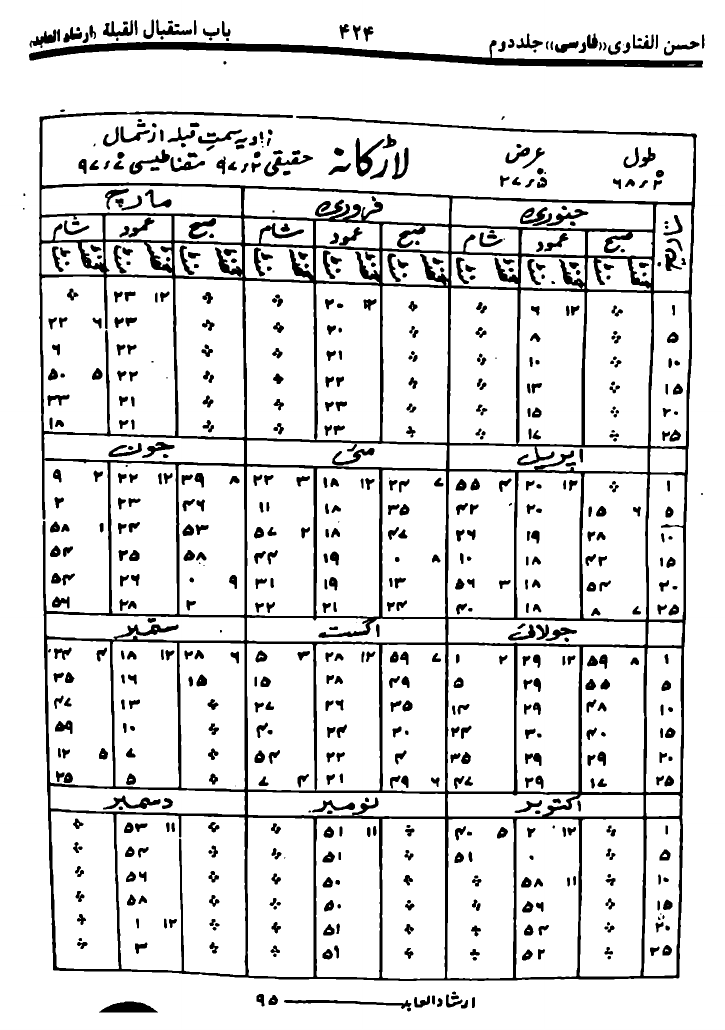 احسن الفتاوی «فارسی» جلد دوم ۴۲۴ باب استقبال القبلة «ارشاد العابد»
طول عرض لاڑکانہ زاویہ سمت قبلہ از شمال
۶۸٫۲ ۲۷٫۵ حقیقی ۹۷٫۲ مقناطیسی ۹۷٫۲
تاریخ جنوری فروری مارچ
صبح عمود شام صبح عمود شام صبح عمود شام
گھنٹہ منٹ گھنٹہ منٹ گھنٹہ منٹ گھنٹہ منٹ گھنٹہ منٹ گھنٹہ منٹ گھنٹہ منٹ گھنٹہ منٹ گھنٹہ منٹ
۱ ÷ ۱۲ ۶ ÷ ÷ ۱۲ ۲۰ ÷ ÷ ۱۲ ۲۳ ÷
۵ ÷ ۸ ÷ ÷ ۲۰ ÷ ÷ ۲۳ ۶ ۲۲
۱۰ ÷ ۱۰ ÷ ÷ ۲۱ ÷ ÷ ۲۲ ۶
۱۵ ÷ ۱۳ ÷ ÷ ۲۲ ÷ ÷ ۲۲ ۵ ۵۰
۲۰ ÷ ۱۵ ÷ ÷ ۲۳ ÷ ÷ ۲۱ ۳۳
۲۵ ÷ ۱۷ ÷ ÷ ۲۳ ÷ ÷ ۲۱ ۱۸
اپریل مئی جون
۱ ÷ ۱۲ ۲۰ ۴ ۵۵ ۷ ۲۴ ۱۲ ۱۸ ۳ ۲۲ ۸ ۳۹ ۱۲ ۲۲ ۲ ۹
۵ ۶ ۱۵ ۲۰ ۴۲ ۳۵ ۱۸ ۱۱ ۴۶ ۲۳ ۲
۱۰ ۲۸ ۱۹ ۲۶ ۴۷ ۱۸ ۲ ۵۷ ۵۳ ۲۴ ۱ ۵۸
۱۵ ۴۲ ۱۸ ۱۰ ۸ ۰ ۱۹ ۴۴ ۵۸ ۲۵ ۵۴
۲۰ ۵۴ ۱۸ ۳ ۵۶ ۱۳ ۱۹ ۳۱ ۹ ۰ ۲۶ ۵۴
۲۵ ۷ ۸ ۱۸ ۴۰ ۲۴ ۲۱ ۲۲ ۲ ۲۸ ۵۶
جولائی اگست ستمبر
۱ ۸ ۵۹ ۱۲ ۲۹ ۲ ۱ ۷ ۵۹ ۱۲ ۲۸ ۳ ۵ ۶ ۲۸ ۱۲ ۱۸ ۴ ۲۴
۵ ۵۵ ۲۹ ۵ ۴۹ ۲۸ ۱۵ ۱۵ ۱۶ ۳۵
۱۰ ۴۸ ۲۹ ۱۴ ۳۵ ۲۶ ۲۷ ÷ ۱۳ ۴۷
۱۵ ۴۰ ۳۰ ۲۴ ۲۰ ۲۴ ۴۰ ÷ ۱۰ ۵۹
۲۰ ۲۹ ۲۹ ۳۵ ۴ ۲۲ ۵۴ ÷ ۷ ۵ ۱۲
۲۵ ۱۷ ۲۹ ۴۷ ۶ ۴۹ ۲۱ ۴ ۷ ÷ ۵ ۲۵
اکتوبر نومبر دسمبر
۱ ÷ ۱۲ ۲ ۵ ۴۰ ÷ ۱۱ ۵۱ ÷ ÷ ۱۱ ۵۳ ÷
۵ ÷ ۰ ۵۱ ÷ ۵۱ ÷ ÷ ۵۴ ÷
۱۰ ÷ ۱۱ ۵۸ ÷ ÷ ۵۰ ÷ ÷ ۵۶ ÷
۱۵ ÷ ۵۶ ÷ ÷ ۵۰ ÷ ÷ ۵۸ ÷
۲۰ ÷ ۵۴ ÷ ÷ ۵۱ ÷ ÷ ۱۲ ۱ ÷
۲۵ ÷ ۵۲ ÷ ÷ ۵۱ ÷ ÷ ۳ ÷
ارشاد العابد ۹۵